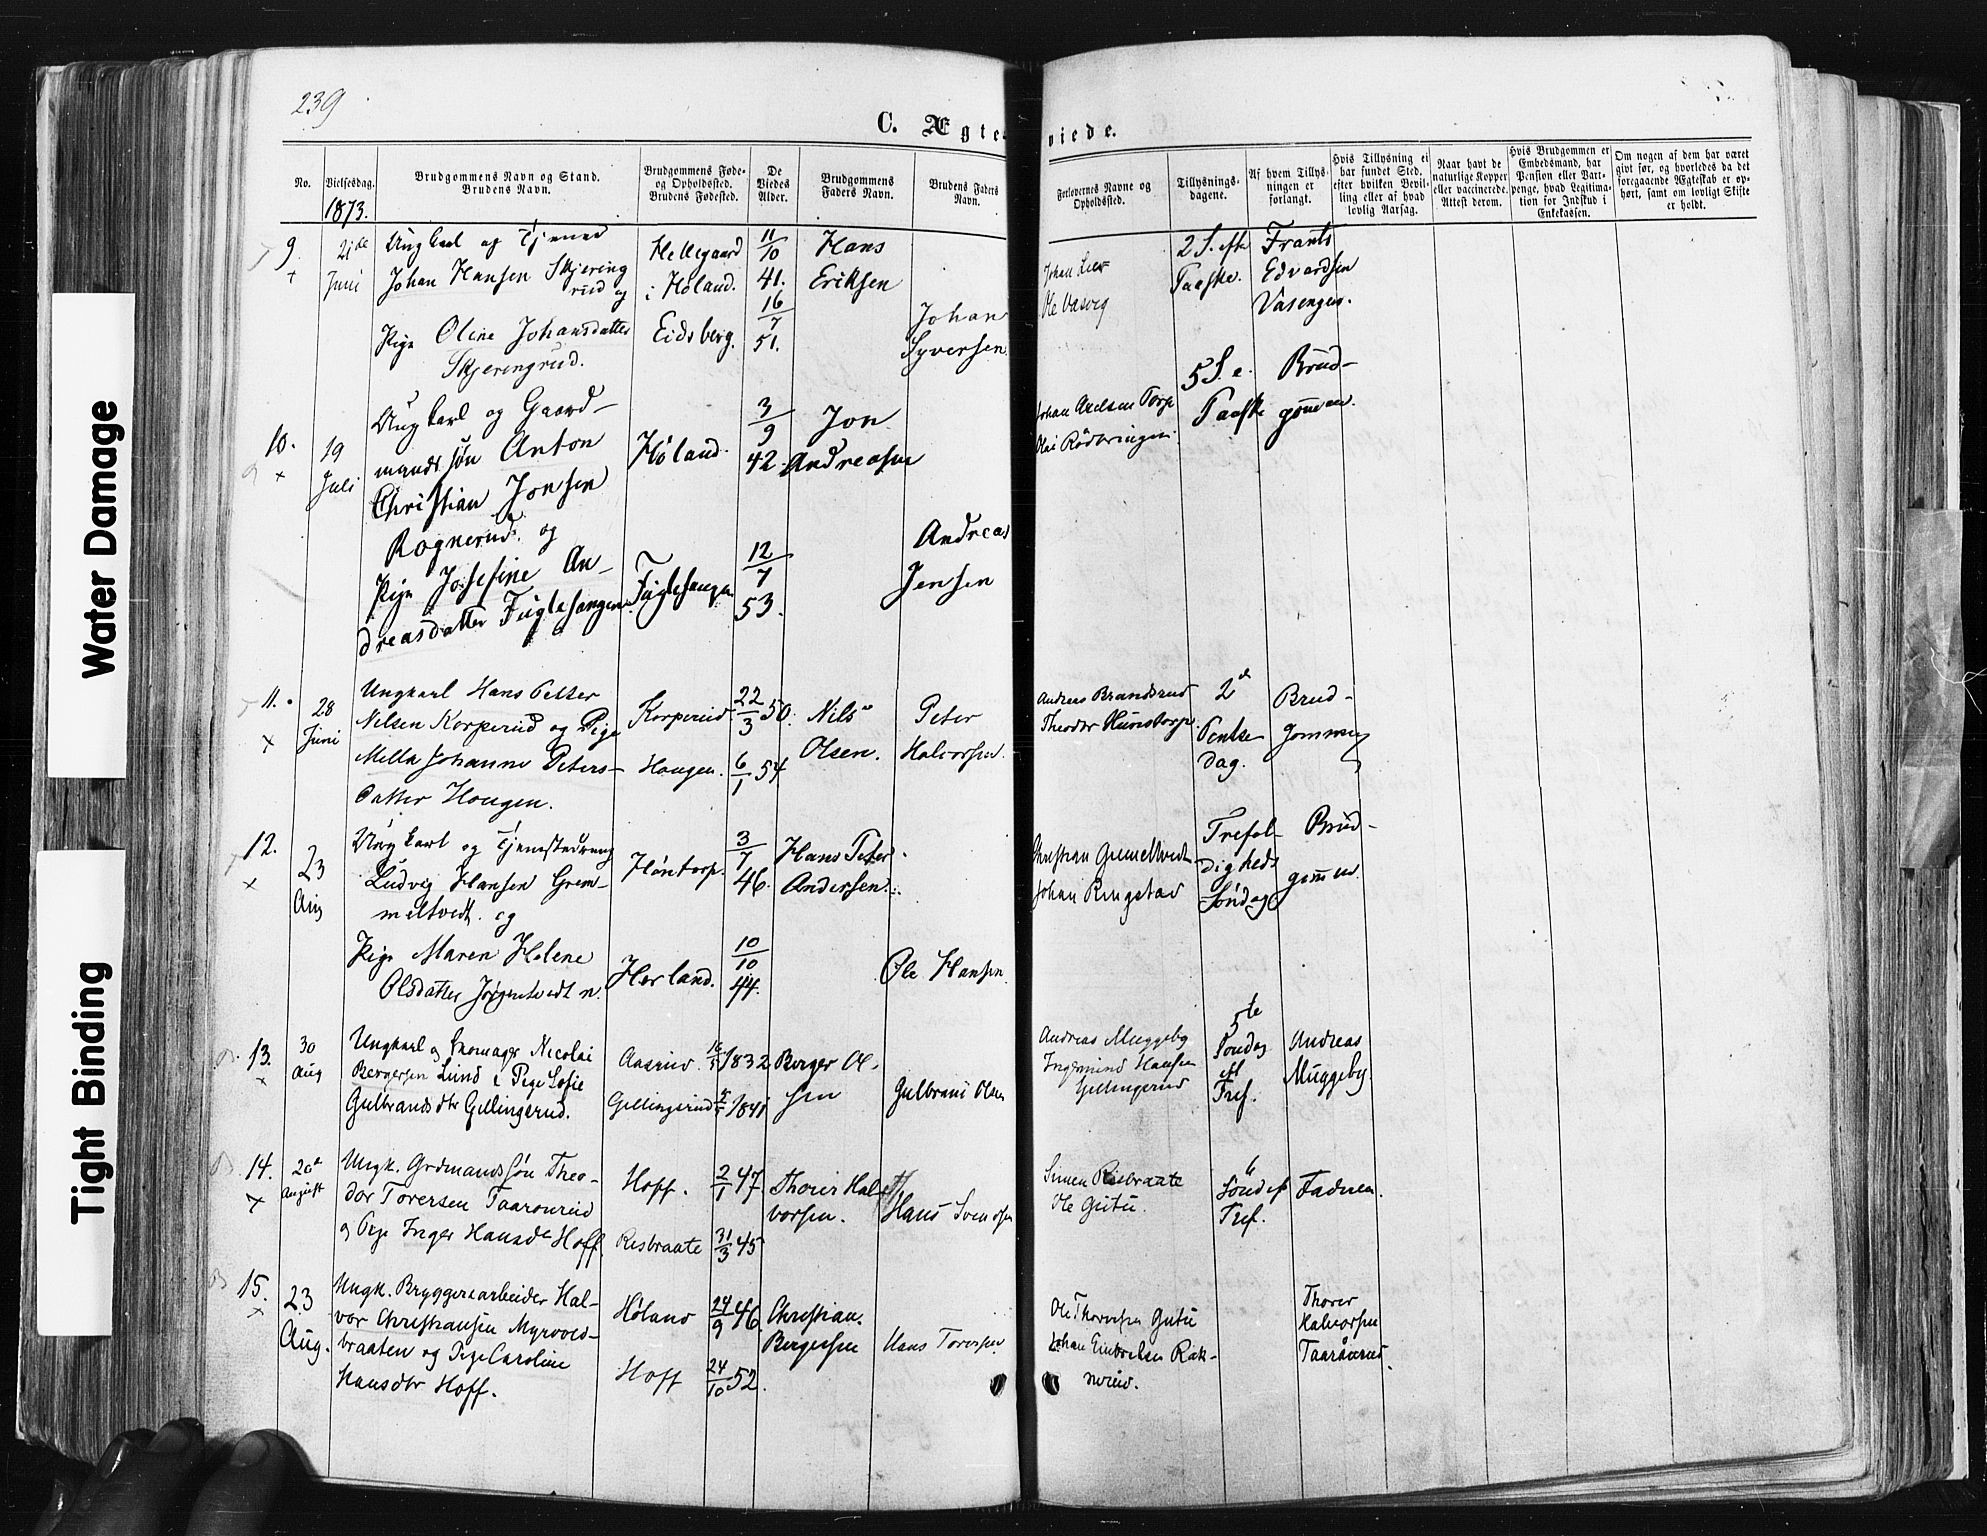 239
C. Ægteviede.
No.
Vielsesdag.
1873.
Brudgommens Navn og Stand.
Brudens Navn.
Brudgommens Føde-
og Opholdsted.
Brudens Fødested.
De
Viedes
Alder.
Brudgommens
Faders Navn.
Brudens Faders
Navn.
Forlovernes Navne og
Opholdssted.
Tillysnings-
dagene.
Af hvem Tillys-
ningen er
forlangt.
Hvis Tillysning ei
har fundet Sted,
efter hvilken Bevil-
ling eller af hvad
lovlig Aarsag.
Naar havt de
naturlige Kopper
eller vaccinerede.
Attest derom.
Hvis Brudgommen er
Embedsmand, har
Pension eller Vart-
penge, hvad Legitima-
tion for Indskud i
Enkekassen.
Om nogen af dem har været
givt før, og hvorledes da det
foregaaende Ægteskab er op-
hørt, samt om lovligt Skifte
er holdt.
9.
21de
Juni
Ungkarl og Tjener
Johan Hansen Skjering
rud og
Pige Oline Johansdatter
Skjeringrud.
Hellegaard
i Høland.
Eidsberg.
11/10
41.
16/7
51.
Hans
Eriksen
Johan
Syversen
Johan Lier
Ole Vasveg
2 S. efter
Paaske.
Frants
Edvardsen
Vasengen.
10.
19
Juli
Ungkarl og Gaard-
mands søn Anton
Christian Jonsen
Rognerud. og
Pige Josefine An-
dreasdatter Fuglesangen
Høland.
Fuglesangen
3/9
42.
12/7
53.
Jon
Andreasen
Andreas
Jensen
Johan Axelsen Torp
Olai Rødbringen
5 S. e.
Paaske
Brud-
gommen.
11.
28
Juni
Ungkarl Hans Petter
Nilsen Korperud og Pige
Mella Johanne Peters-
datter Hougen.
Korperud
Hougen.
22/3 50.
6/1 54
Nils
Olsen.
Peter
Halvorsen.
Andreas Brandsrud
Theodor Hunstorp.
2d
Pentse
dag.
Brud-
gommen
12.
23
Aug
Ungkarl og Tjenestedreng
Ludvig Hansen Grem-
meltvedt. og
Pige Maren Helene
Olsdatter Jørgentvedt n.
Høntorp.
Herland.
3/7
46.
10/10
44.
Hans Peter
Andersen.
Ole Hansen
Christian Gremeltvedt
Johan Ringstad
Trefol-
digheds
Søndag
Brud-
gommen.
13.
30
Aug
Ungkarl og Skomager Nicolai
Bergersen Lund & Pige Sofie
Gulbrandsdtr Gellingerud.
Aasrud
Gellingerud
1832
1841
Berger Ol-
sen
Gulbrand Olsen
Andreas Muggeby
Ingemund Hansen
Gellingerud
5te
Søndag
eft
Tref.
Andreas
Muggeby
14.
20de
August
Ungk. Grdmandssøn Theo-
dor Torersen Taarourud
og Pige Inger Hansdr Hoff
Hoff.
Risbraate
2/1 47
31/3 45
Thorer Hal-
vorsen.
Hans Svendsen
Simen Risbraate
Ole Gutu.
"
Sønd ef
Tref.
Faderen.
15.
23
Aug.
Ungk. Bryggeriarbeider Hal-
vor Christiansen Myrvold-
braaten og Pige Caroline
Hansdtr Hoff.
Høland
Hoff
24/9 46
24/10 52.
Christian
Bergersen
Hans Toresen
Ole Thoresen Gutu
Johan Eimbretsen Rak-
nerud.
Thorer
Halvorsen
Taarårud.
Water Damage
Tight Binding